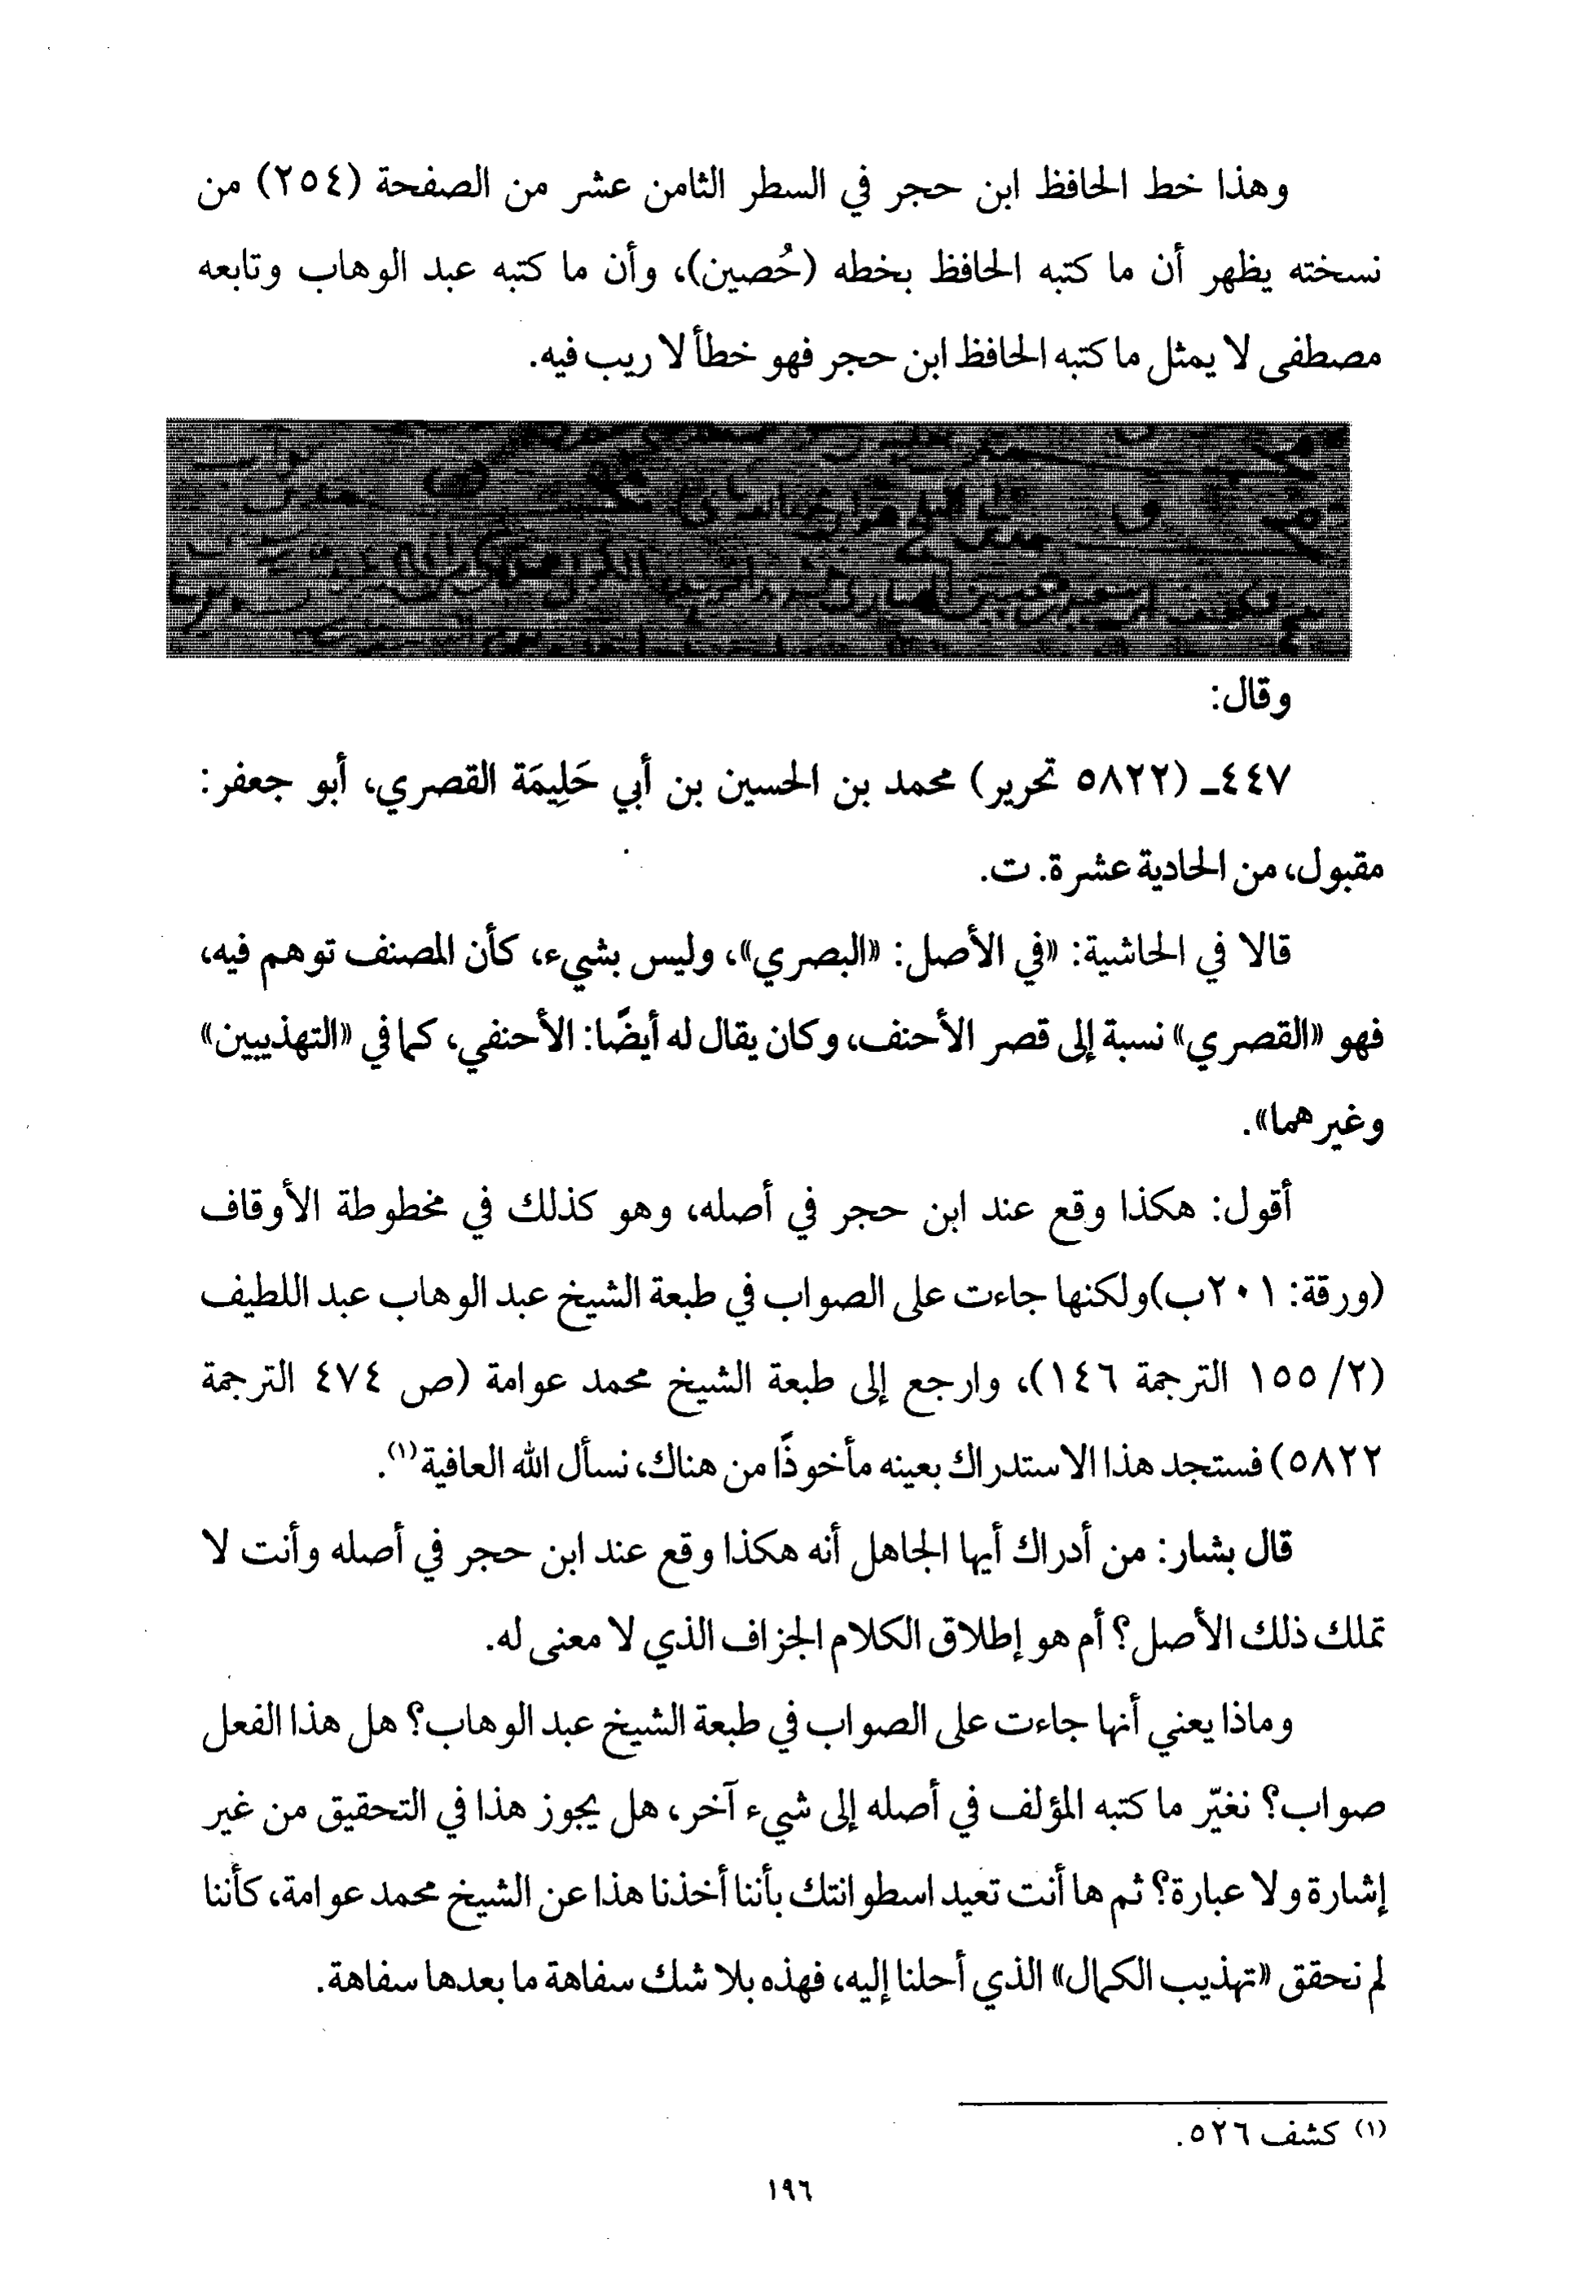 وهذا خط الحافظ ابن حجر في السطر الثامن عشر من الصفحة (٢٥٤) من
نسخته يظهر أن ما كتبه الحافظ بخطه (حُصين)، وأن ما كتبه عبد الوهاب وتابعه
مصطفى لا يمثل ما كتبه الحافظ ابن حجر فهو خطأ لا ريب فيه.
وقال:
٤٤٧ـ (٥٨٢٢ تحرير) محمد بن الحسين بن أبي حَلِيمَة القصري، أبو جعفر:
مقبول، من الحادية عشرة. ت.
قالا في الحاشية: «في الأصل: «البصري»، وليس بشيء، كأن المصنف توهم فيه،
فهو «القصري» نسبة إلى قصر الأحنف، وكان يقال له أيضًا: الأحنفي، كما في «التهذيبين»
وغيرهما».
أقول: هكذا وقع عند ابن حجر في أصله، وهو كذلك في مخطوطة الأوقاف
(ورقة: ٢٠١ب) ولكنها جاءت على الصواب في طبعة الشيخ عبد الوهاب عبد اللطيف
(٢/ ١٥٥ الترجمة ١٤٦)، وارجع إلى طبعة الشيخ محمد عوامة (ص ٤٧٤ الترجمة
٥٨٢٢) فستجد هذا الاستدراك بعينه مأخوذًا من هناك، نسأل الله العافية<sup>(١)</sup>.
قال بشار: من أدراك أيها الجاهل أنه هكذا وقع عند ابن حجر في أصله وأنت لا
تملك ذلك الأصل؟ أم هو إطلاق الكلام الجزاف الذي لا معنى له.
وماذا يعني أنها جاءت على الصواب في طبعة الشيخ عبد الوهاب؟ هل هذا الفعل
صواب؟ نغيّر ما كتبه المؤلف في أصله إلى شيء آخر، هل يجوز هذا في التحقيق من غير
إشارة ولا عبارة؟ ثم ها أنت تعيد اسطوانتك بأننا أخذنا هذا عن الشيخ محمد عوامة، كأننا
لم نحقق «تهذيب الكمال» الذي أحلنا إليه، فهذه بلا شك سفاهة ما بعدها سفاهة.
(١) كشف ٥٢٦.
١٩٦